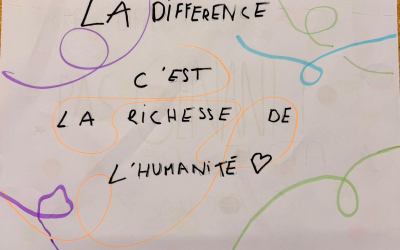 LA DIFFERENCE
C'EST
LA RICHESSE DE
L'HUMANITÉ ♡